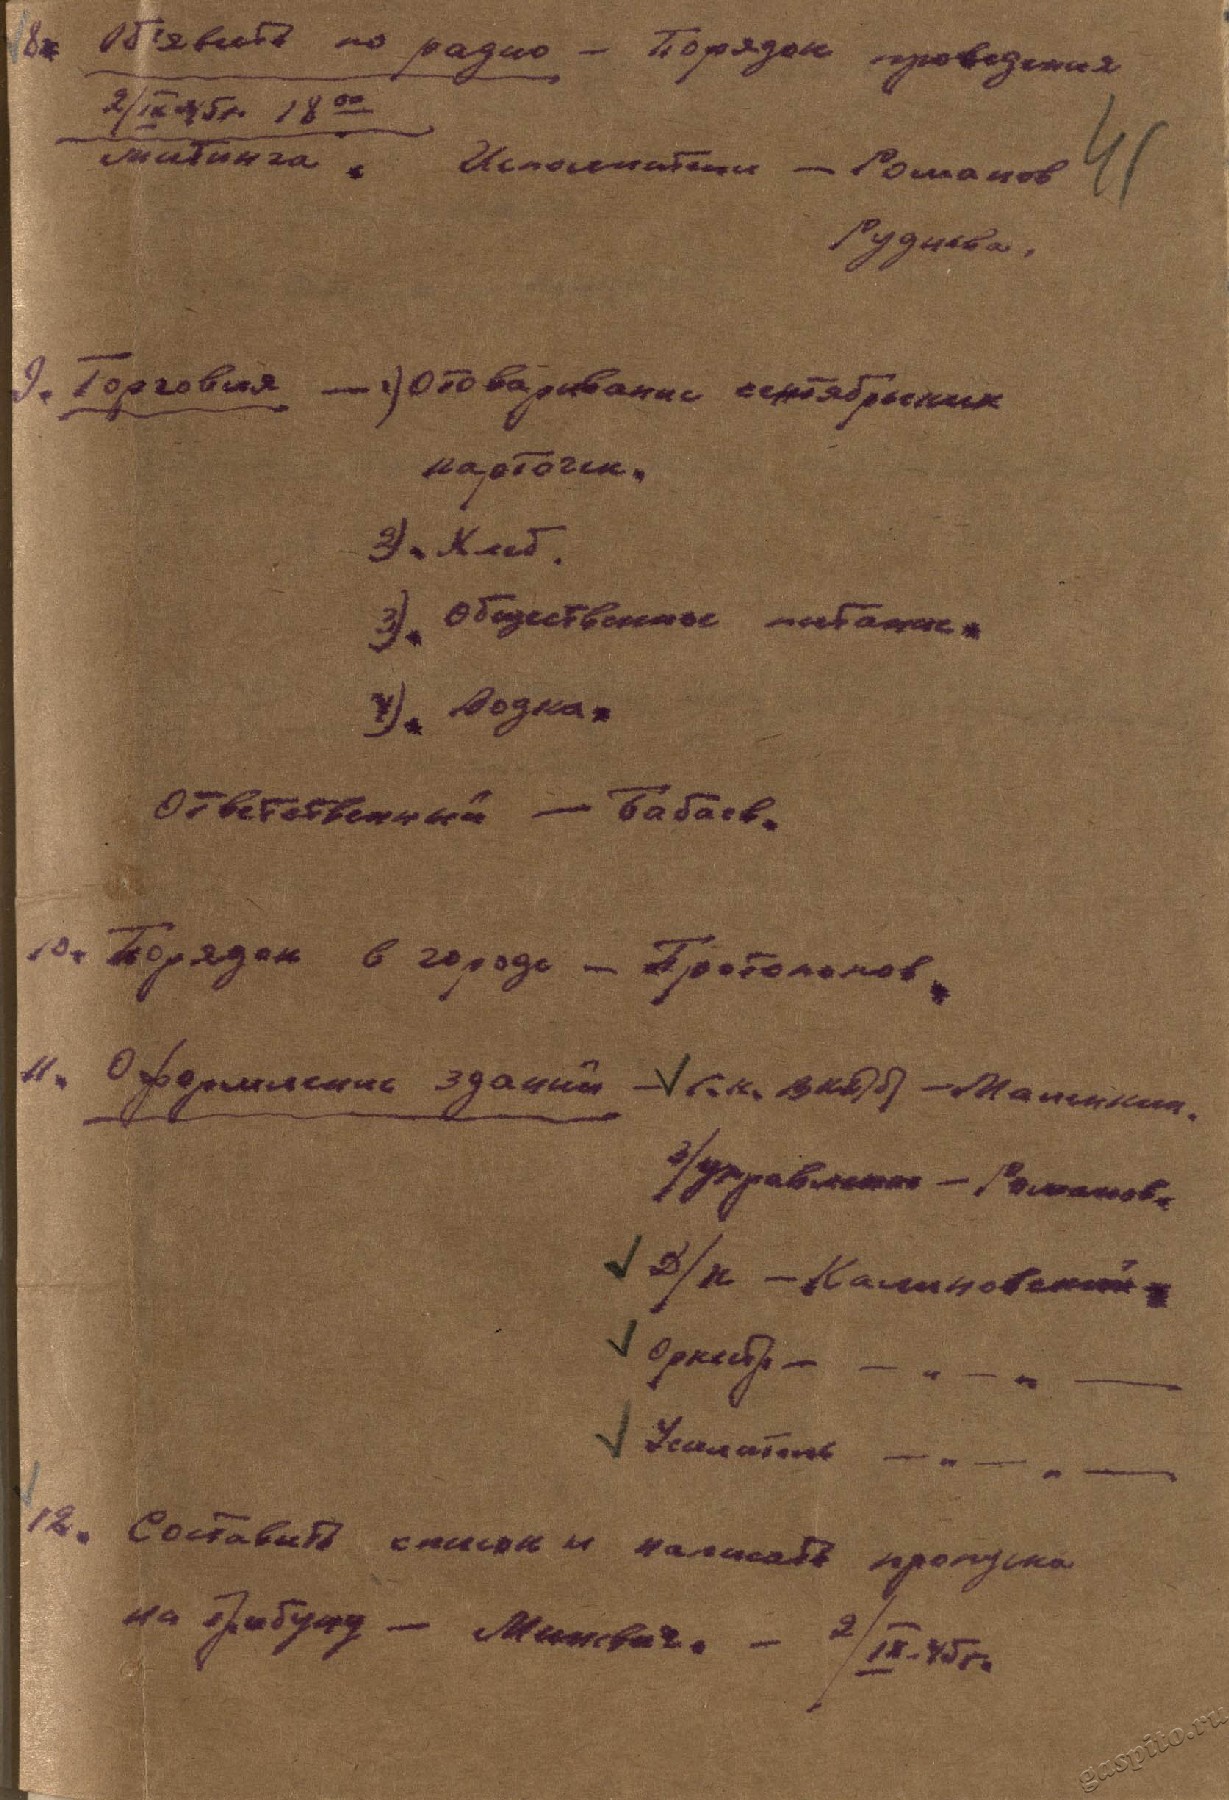 8. Об'явить по радио – Порядок проведения
2/IX-45г. 18 00
митинга. Исполнители – Романов
41
Руднева.
9. Торговля – 1) Отоваривание сентябрьских
карточек.
2). Хлеб.
3). Общественное питание.
4). Водка.
Ответственный – Бабаев.
10. Порядок в городе – Протопопов.
11. Оформление зданий – √ Г.К. ВКП/б/ – Маленкин.
з/управление – Романов.
√ Д/К – Калиновский.
√ Оркестр – – " – " –
√ Усилитель – " – " –
√ 12. Составить список и написать пропуска
на трибуну – Минкевич. – 2/IX-45г.
gaspito.ru